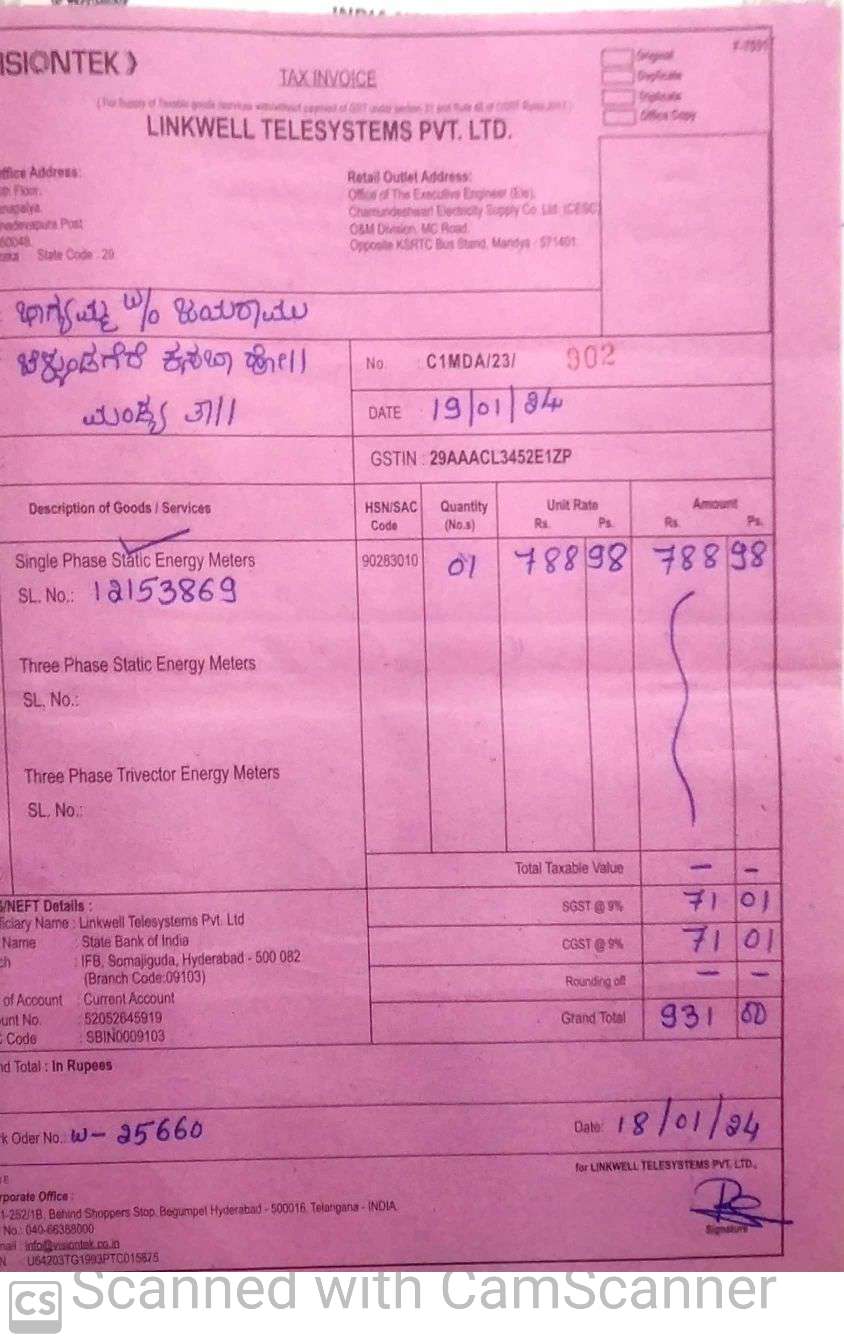 ISIONTEK
TAX INVOICE
LINKWELL TELESYSTEMS PVT. LTD.
Original
Duplicate
Triplicate
Office Copy
ffice Address:
th Floor,
Post
State Code : 29
Retail Outlet Address:
Office of The Executive Engineer (Ele),
Chamundeshwari Electricity Supply Co. Ltd. (CESC)
O&M Division, MC Road,
Opposite KSRTC Bus Stand, Mandya - 571401.
ಭಾಗ್ಯಮ್ಮ w/o ಜಯರಾಮು
ಕಸಬಾ ಹೋ||
ಮಂಡ್ಯ ತಾ||
No. : C1MDA/23/ 902
DATE 19/01/24
GSTIN : 29AAACL3452E1ZP
Description of Goods / Services HSN/SAC Code Quantity (No.s) Unit Rate Rs. Ps. Amount Rs. Ps.
Single Phase Static Energy Meters 90283010 01 788 98 788 98
SL. No.: 12153869
Three Phase Static Energy Meters
SL. No.:
Three Phase Trivector Energy Meters
SL. No.:
Total Taxable Value — —
SGST @ 9% 71 01
CGST @ 9% 71 01
Rounding off — —
Grand Total 931 00
/NEFT Details :
ficiary Name : Linkwell Telesystems Pvt. Ltd
Name : State Bank of India
ch : IFB, Somajiguda, Hyderabad - 500 082
(Branch Code:09103)
of Account : Current Account
unt No. : 52052645919
Code : SBIN0009103
nd Total : In Rupees
k Oder No.: W- 25660
Date: 18/01/24
for LINKWELL TELESYSTEMS PVT. LTD.,
Signature
rporate Office :
1-252/1B, Behind Shoppers Stop, Begumpet Hyderabad - 500016, Telangana - INDIA.
No.: 040-66388000
mail : info@visiontek.co.in
N : U64203TG1993PTC015875
CS Scanned with CamScanner